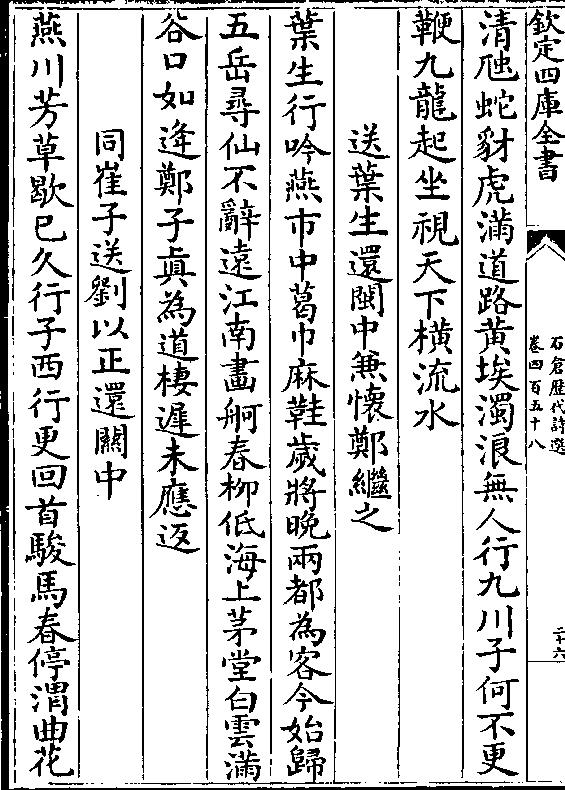 欽定四庫全書
石倉歷代詩選
卷四百五十八
二十六
清虺蛇豺虎滿道路黄埃濁浪無人行九川子何不更
鞭九龍起坐視天下横流水
送葉生還閩中兼懷鄭繼之
葉生行吟燕市中葛巾麻鞋歲將晚兩都為客今始歸
五岳尋仙不辭遠江南畫舸春柳低海上茅堂白雲滿
谷口如逢鄭子真為道棲遲未應返
同崔子送劉以正還關中
燕川芳草歇已久行子西行更回首駿馬春停渭曲花